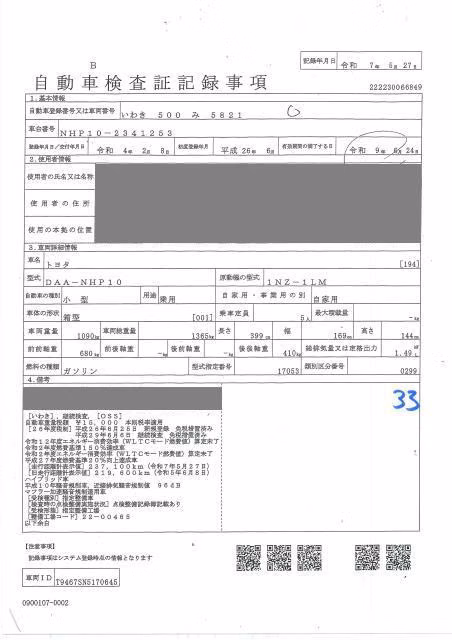 B
記録年月日 令和 7年 5月 27日
自動車検査証記録事項
222230066849
1.基本情報
自動車登録番号又は車両番号 いわき 500 み 5821
車台番号 NHP10-2341253
登録年月日/交付年月日 令和 4年 2月 8日 初度登録年月 平成 26年 6月 有効期間の満了する日 令和 9年 6月 24日
2.使用者情報
使用者の氏名又は名称
使用者の住所
使用の本拠の位置
3.車両詳細情報
車名 トヨタ [194]
型式 DAA-NHP10 原動機の型式 1NZ-1LM
自動車の種別 小型 用途 乗用 自家用・事業用の別 自家用
車体の形状 箱型 [001] 乗車定員 5人 最大積載量 -kg
車両重量 1090kg 車両総重量 1365kg 長さ 399cm 幅 169cm 高さ 144cm
前前軸重 680kg 前後軸重 -kg 後前軸重 -kg 後後軸重 410kg 総排気量又は定格出力 1.49
燃料の種類 ガソリン 型式指定番号 17053 類別区分番号 0299
4.備考
33
[いわき], 継続検査, [OSS]
自動車重量税額 ¥15,000 本則税率適用
[26年度税制] 平成26年6月25日 新規登録 免税措置済み
平成29年6月6日 継続検査 免税措置済み
令和12年度エネルギー消費効率(WLTCモード燃費値)算定未了
令和2年度燃費基準150%達成車
令和2年度エネルギー消費効率(WLTCモード燃費値)算定未了
平成27年度燃費基準20%向上達成車
[走行距離計表示値] 237,100km (令和7年5月27日)
[旧走行距離計表示値] 219,600km (令和5年6月8日)
ハイブリッド車
平成10年騒音規制車, 近接排気騒音規制値 96dB
マフラー加速騒音規制適用車
[受検種別] 指定整備車
[検査時の点検整備実施状況] 点検整備記録簿記載あり
[受検形態] 指定整備工場
[整備工場コード] 22-00465
以下余白
【注意事項】
記録事項はシステム登録時点の情報となります
車両ID T9467SN5170645
0900107-0002